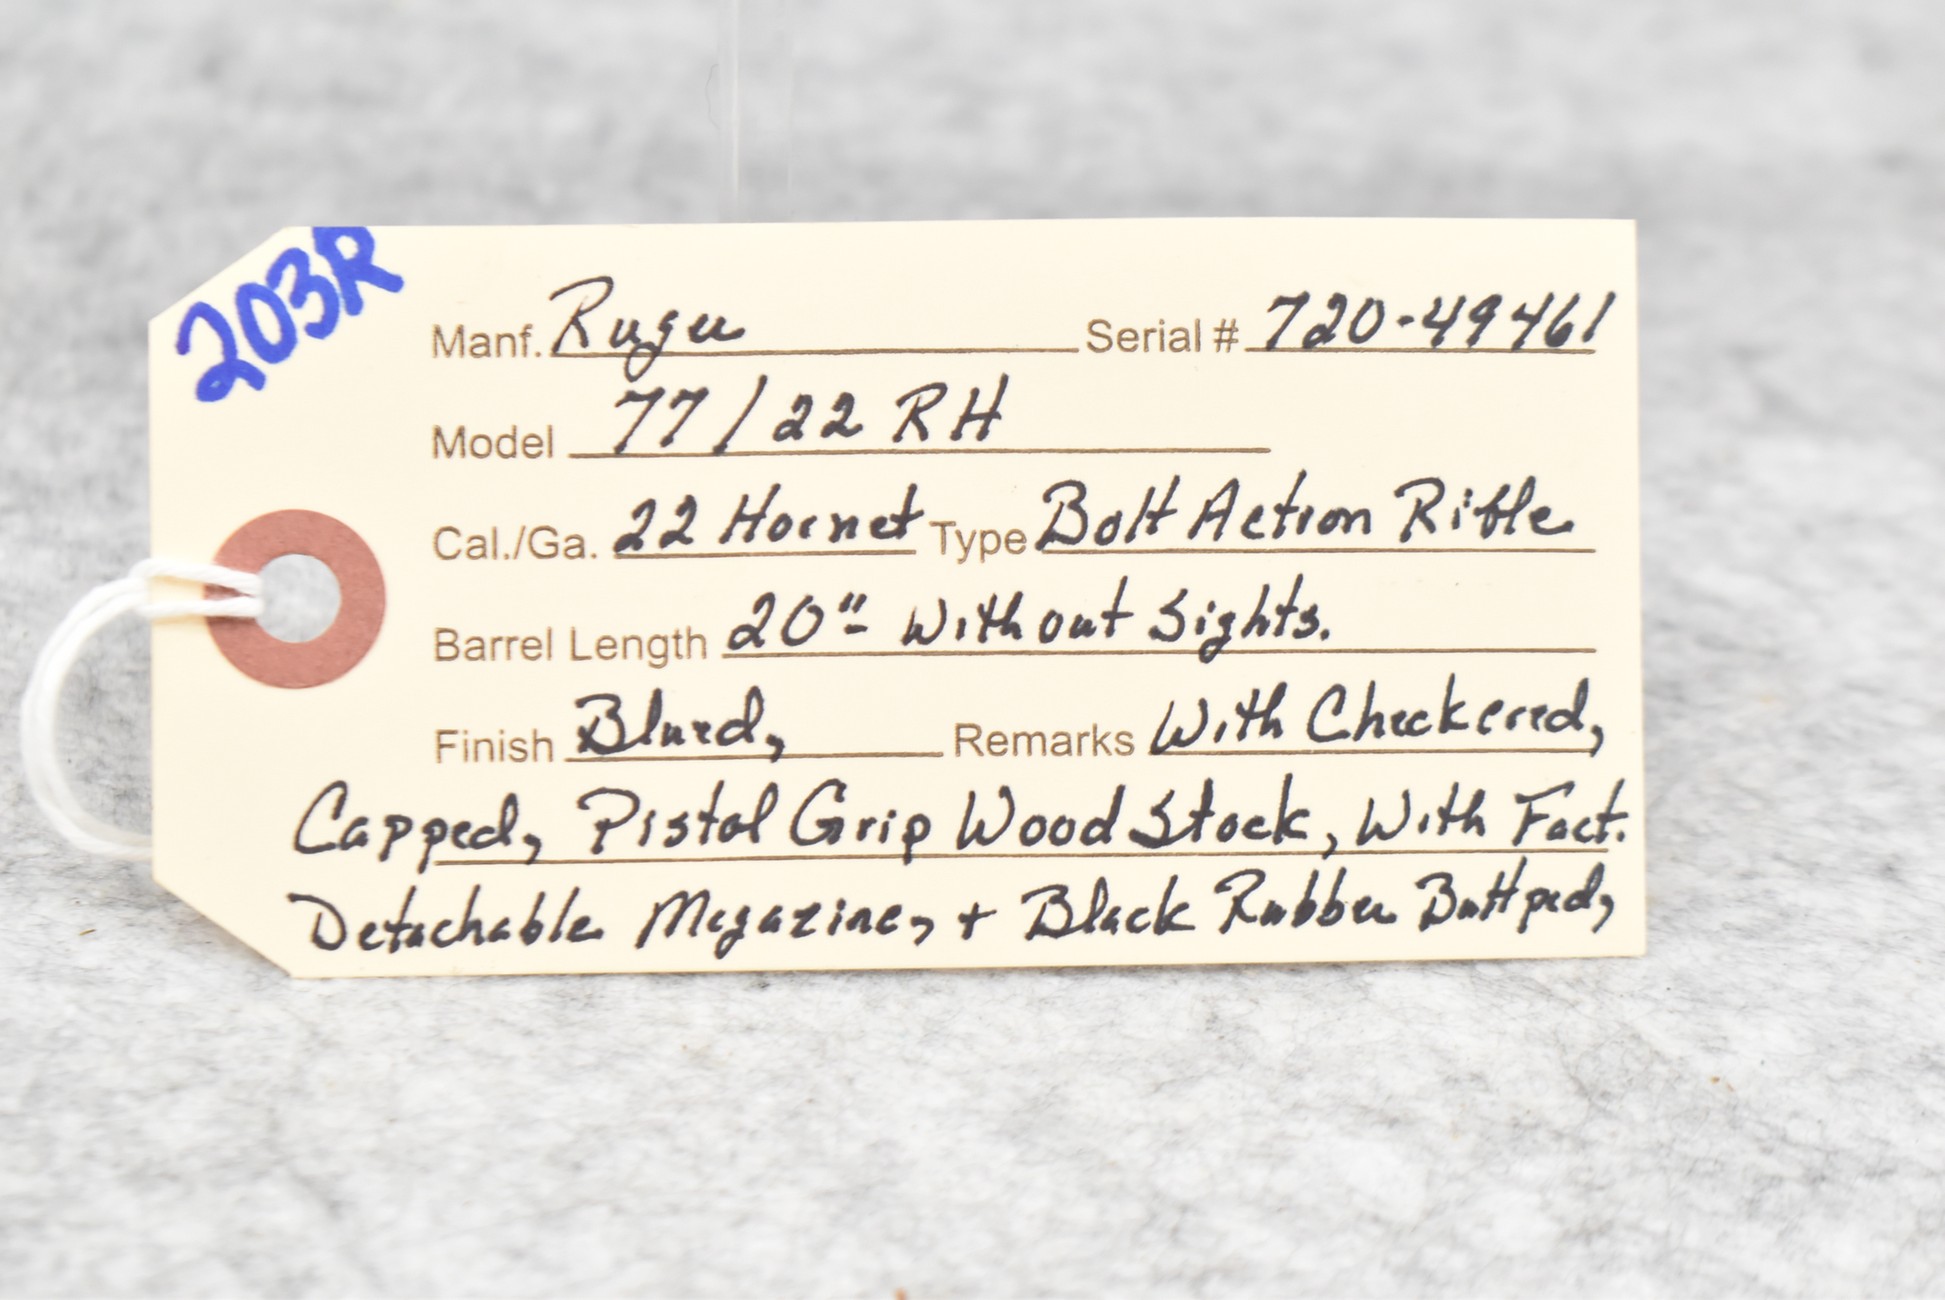 203R
Manf. Ruger Serial # 720-49461
Model 77/22 RH
Cal./Ga. 22 Hornet Type Bolt Action Rifle
Barrel Length 20"- Without Sights.
Finish Blued, Remarks With Checkered,
Capped, Pistol Grip Wood Stock, With Fact.
Detachable Magazine, + Black Rubber Buttpad,